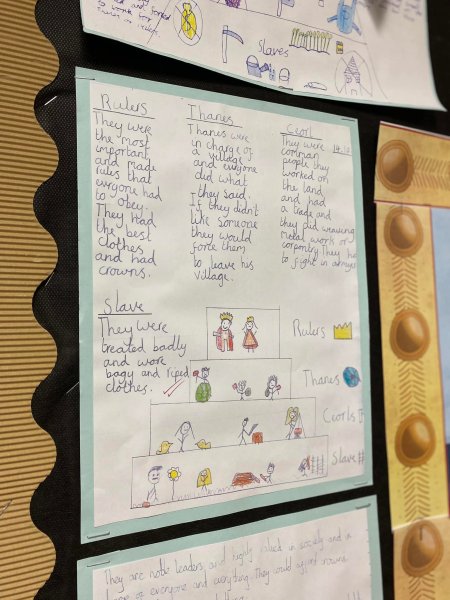 slaves
Rulers
They were
the most
important
and made
rules that
everyone had
to obey.
They Had
the best
clothes
and had
crowns.
Thanes
Thanes were
in charge of
a village
and everyone
did what
they said.
If they didn't
like someone
they would
force them
to leave his
village.
Ceorl
They were
common
people they
worked on
the land
and had
a trade and
they did weaving
Metal work or
they had
to fight in
Slave
They were
treated badly
and wore
bagy and riped
clothes.
Rulers
Thanes
Ceorls
Slave
They are noble leaders and highly valued in society and in
of everyone and everything. They could